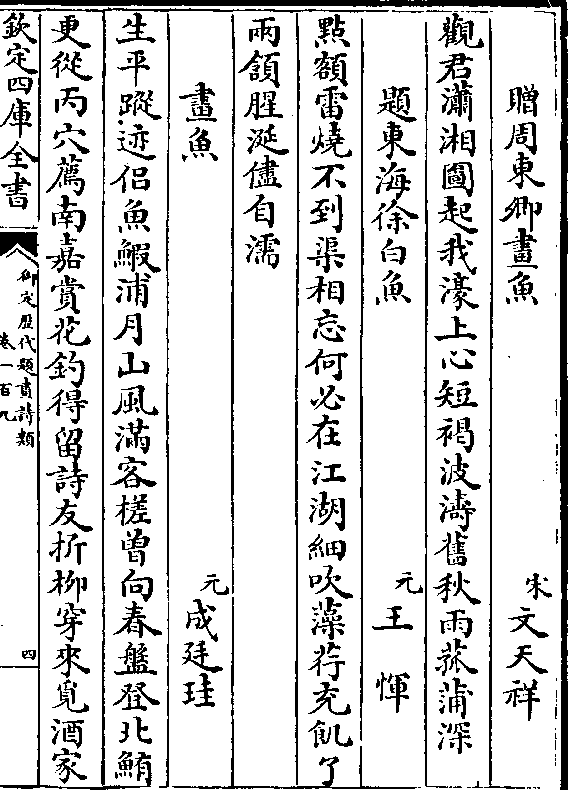 贈周東卿畫魚
宋文天祥
觀君瀟湘圖起我濠上心短褐波濤舊秋雨菰蒲深
題東海徐白魚
元王惲
點額雷燒不到渠相忘何必在江湖細吹藻荇充飢了
兩頷腥涎儘自濡
畫魚
元成廷珪
生平蹤迹侣魚鰕浦月山風滿客槎曾向春盤登北鮪
更從丙穴薦南嘉賞花釣得留詩友折柳穿來覓酒家
欽定四庫全書
御定歷代題畫詩類
卷一百九
四